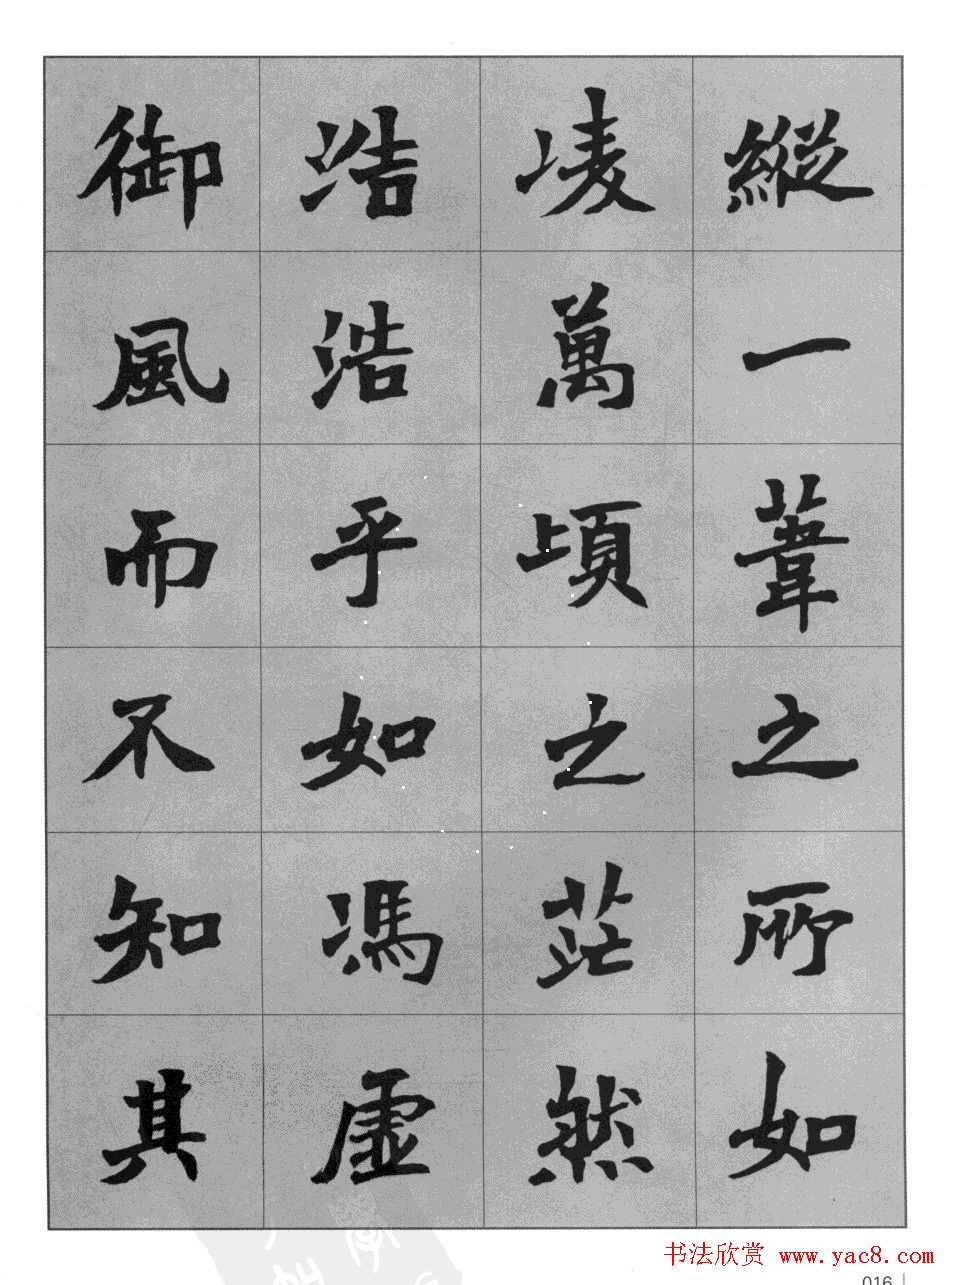 縱一葦之所如
淩萬頃之茫然
浩浩乎如馮虛
御風而不知其
书法欣赏 www.yac8.com
016